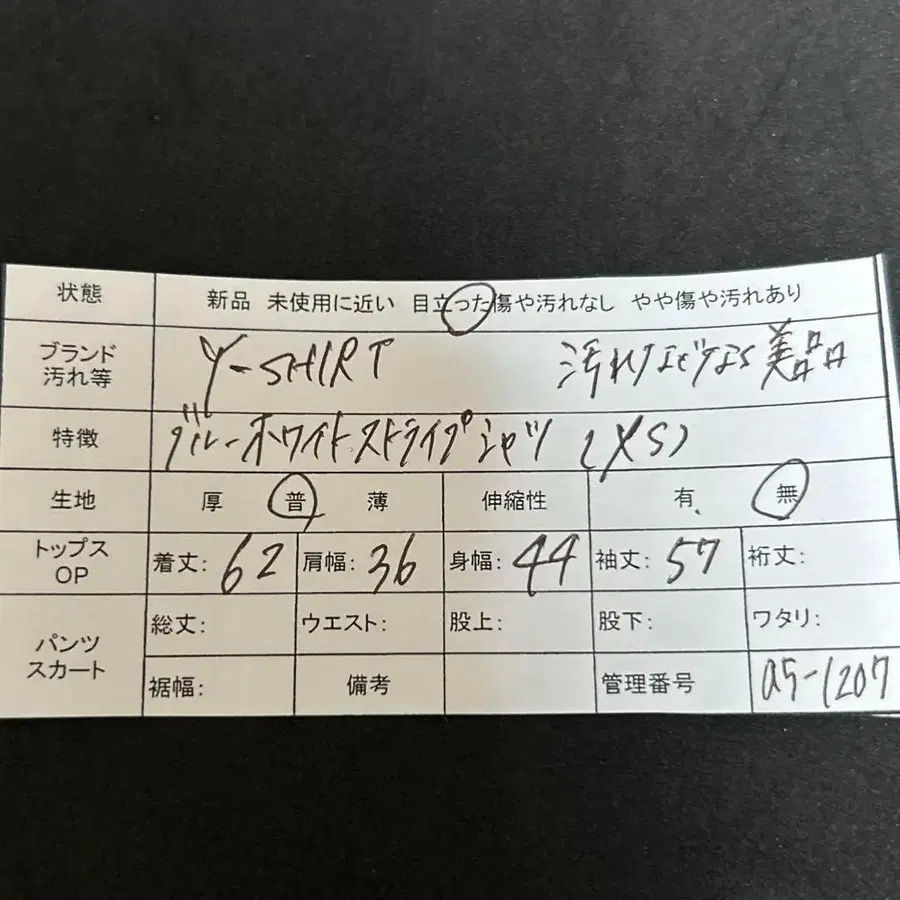 状態 新品 未使用に近い 目立った傷や汚れなし やや傷や汚れあり
ブランド 汚れ等 Y-SHIRT 汚れなどなく美品
特徴 ブルーホワイトストライプシャツ (XS)
生地 厚 普 薄 伸縮性 有 無
トップス OP 着丈: 62 肩幅: 36 身幅: 44 袖丈: 57 裄丈:
パンツ スカート 総丈: ウエスト: 股上: 股下: ワタリ:
裾幅: 備考 管理番号 a5-1207